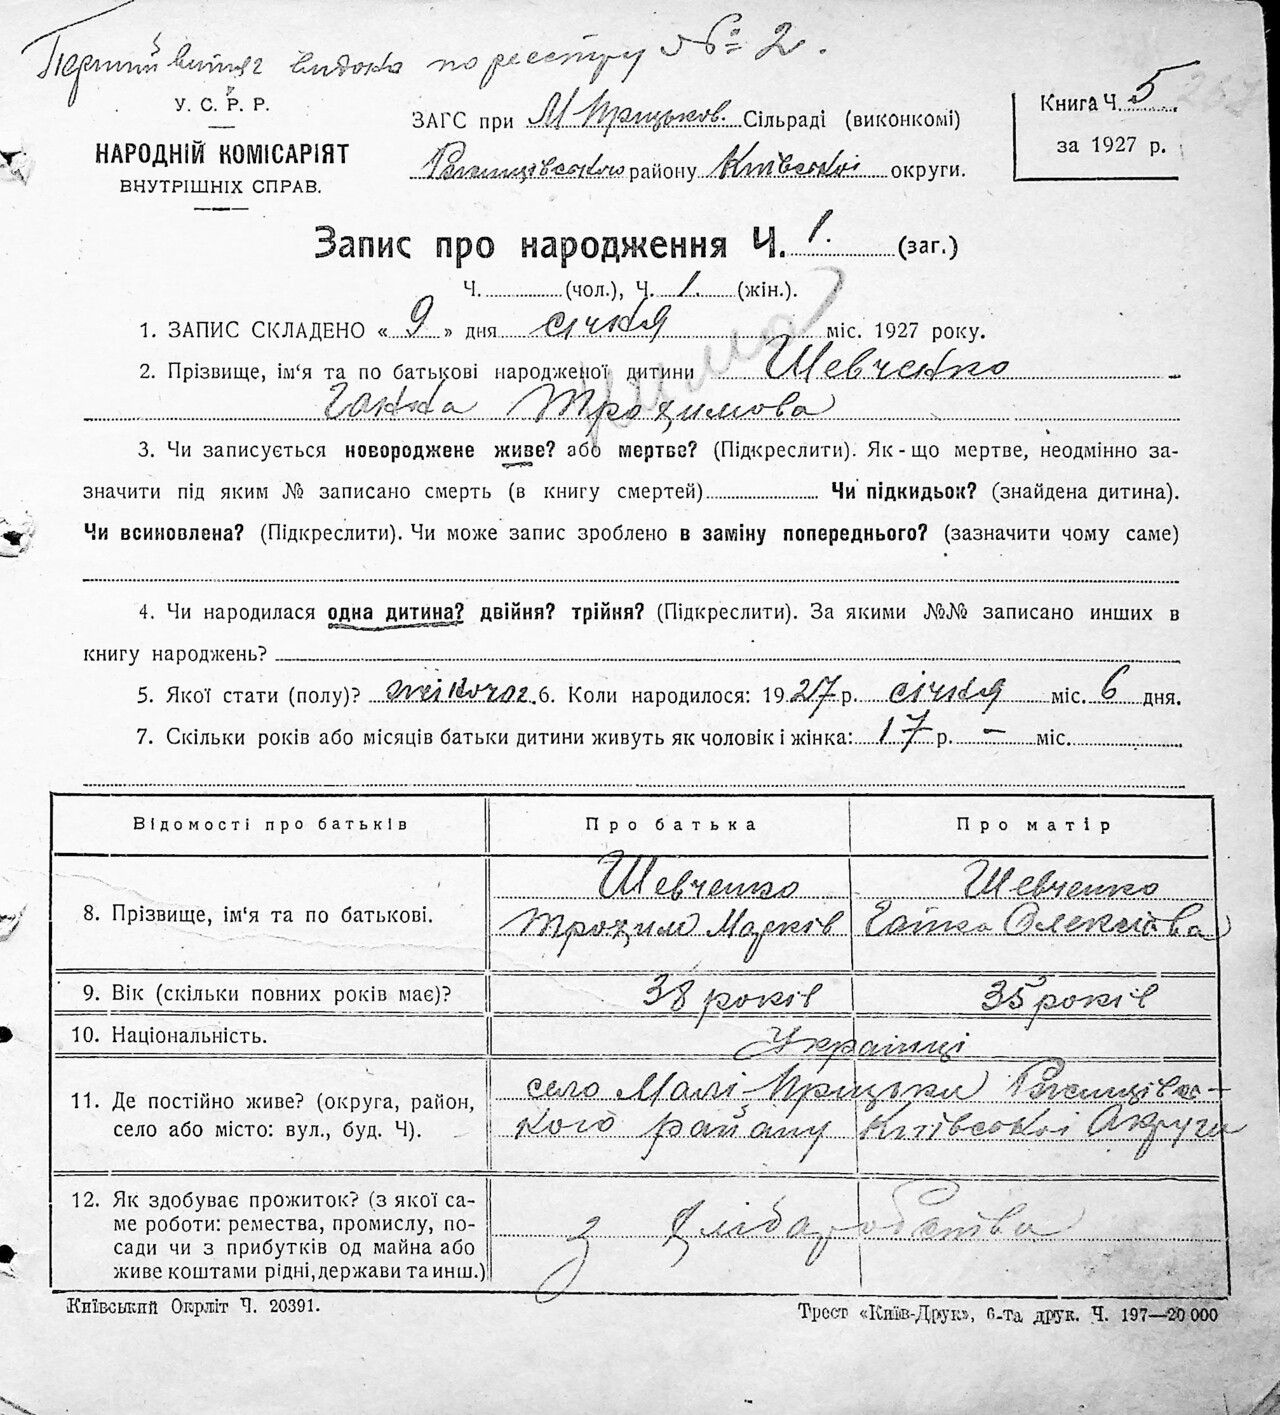 Перший витяг видано по реєстру № 2.
У. С. Р. Р.
НАРОДНІЙ КОМІСАРІЯТ
ВНУТРІШНІХ СПРАВ.
ЗАГС при М Прицьков. Сільраді (виконкомі)
Ржищівського району Київської округи.
Книга Ч. 5
за 1927 р.
Запис про народження Ч. 1. (заг.)
Ч. (чол.), Ч. 1. (жін.).
1. ЗАПИС СКЛАДЕНО « 9 » дня січня міс. 1927 року.
2. Прізвище, ім'я та по батькові народженої дитини Шевченко
Ганна Трохимова
3. Чи записується новороджене живе? або мертве? (Підкреслити). Як-що мертве, неодмінно за-
значити під яким № записано смерть (в книгу смертей) Чи підкидьок? (знайдена дитина).
Чи всиновлена? (Підкреслити). Чи може запис зроблено в заміну попереднього? (зазначити чому саме)
4. Чи народилася одна дитина? двійня? трійня? (Підкреслити). За якими №№ записано инших в
книгу народжень?
5. Якої стати (полу)? жіночої. 6. Коли народилося: 1927 р. січня міс. 6 дня.
7. Скільки років або місяців батьки дитини живуть як чоловік і жінка: 17 р. — міс.
Відомості про батьків Про батька Про матір
8. Прізвище, ім'я та по батькові. Шевченко Трохим Марків Шевченко Ганна Олексіева
9. Вік (скільки повних років має)? 38 років 35 років
10. Національність. Українці
11. Де постійно живе? (округа, район, село Малі-Прицьки Ржищівсь-
село або місто: вул., буд. Ч). кого району Київської Округи
12. Як здобуває прожиток? (з якої са-
ме роботи: ремества, промислу, по-
сади чи з прибутків од майна або
живе коштами рідні, держави та инш.)
з хліборобства
Київський Окрліт Ч. 20391.
Трест «Київ-Друк», 6-та друк. Ч. 197—20 000